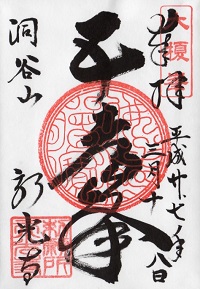 奉拝
平成廿七年
三月十
八日
五老峯
洞谷山
永光寺